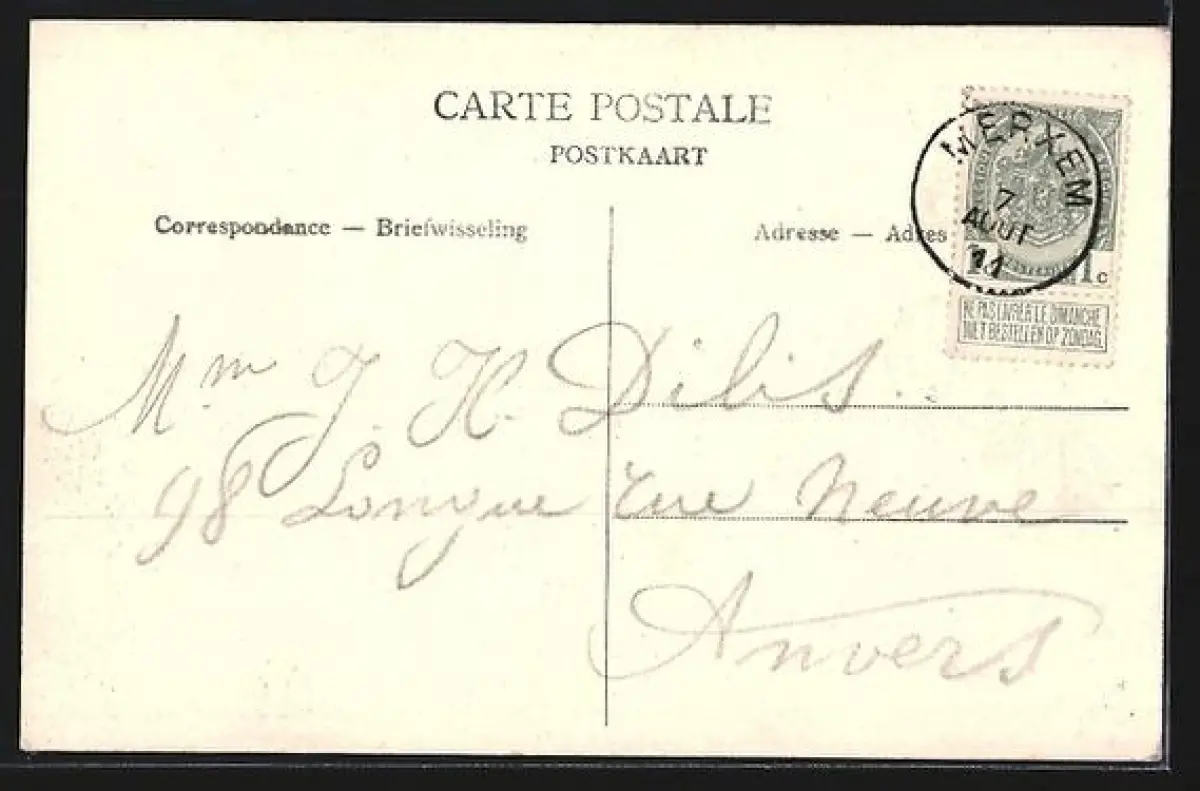 CARTE POSTALE
POSTKAART
Correspondance — Briefwisseling
Adresse — Adres
MERXEM
7
AOUT
11
1c 1c
NE PAS LIVRER LE DIMANCHE
NIET BESTELLEN OP ZONDAG
Mm J H. Dilis.
98 Longue rue Neuve
Anvers